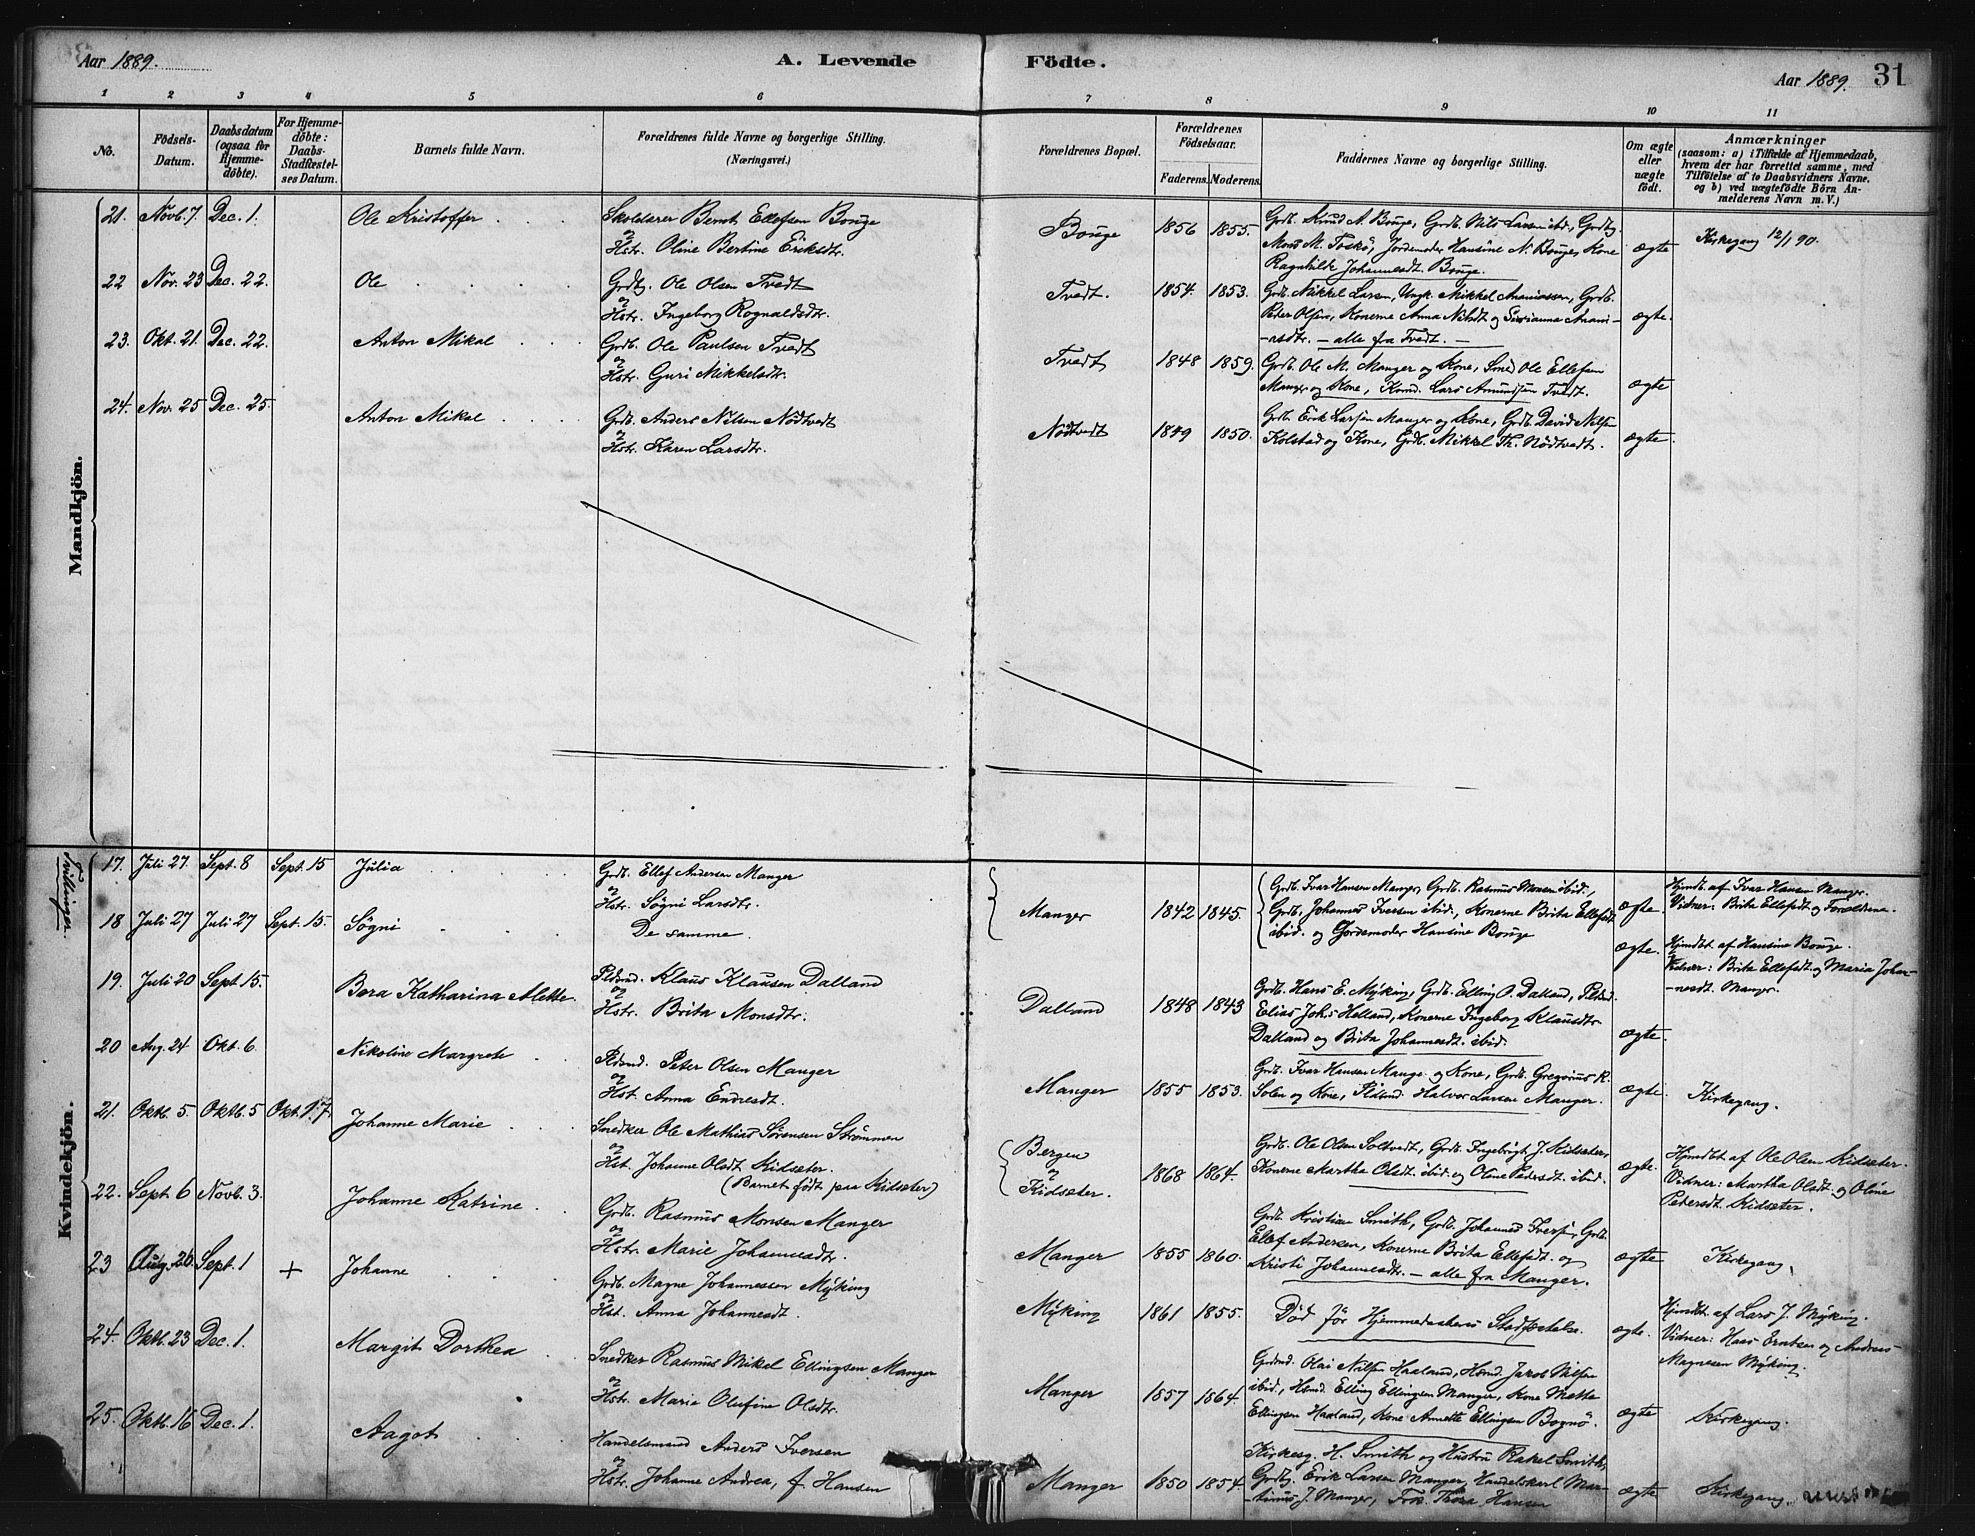 Aar 1889. A. Levende Födte. Aar 1889. 31
1 2 3 4 5 6 7 8 9 10 11
No.
Födsels-
Datum.
Daabsdatum
(ogsaa for
Hjemme-
döbte).
For Hjemme-
döbte:
Daabs-
Stadfæstel-
ses Datum.
Barnets fulde Navn.
Forældrenes fulde Navne og borgerlige Stilling.
(Næringsvei.)
Forældrenes Bopæl.
Forældrenes
Födselsaar.
Faderens. Moderens.
Faddernes Navne og borgerlige Stilling.
Om ægte
eller
uægte
födt.
Anmærkninger
(saasom: a) i Tilfælde af Hjemmedaab,
hvem der har forrettet samme, med
Tilföielse af to Daabsvidners Navne.
og b) ved uægtefödte Börn An-
melderens Navn m. V.)
Mandkjön.
21. Novb. 7 Dec. 1. Ole Kristoffer
Skolelærer Bernt Ellefsen Bouge
og
Hstr. Oline Bertine Eriksdtr.
Bouge 1856 1855.
Grdb. Knud A. Bouge, Grdb. Nils Larsen ibd., Grdbg.
Mons M. Toskö, Jordemoder Hansine N. Bouge, Kone
Ragnhilde Johannesdt. Bouge.
ægte Kirkegang 12/1 90.
22 Nov. 23 Dec. 22. Ole
Grdbg. Ole Olsen Tvedt
og
Hstr. Ingeborg Rognaldsdtr.
Tvedt. 1854. 1853.
Grdb. Mikkel Larsen, Ungk. Mikkel Ananiassen, Grdb.
Peder Olsen, Konerne Anna Nilsdt og Susanna Anani-
-asdtr. - alle fra Tvedt. -
ægte.
23. Okt. 21. Dec. 22. Anton Mikal
Grdb. Ole Paulsen Tvedt
og
Hstr. Guri Mikkelsdtr.
Tvedt 1848 1859.
Grdb. Ole M. Manger og Kone, Smed Ole Ellefsen
Manger og Kone, Lars Amundsen Tvedt.
ægte
24. Nov. 25 Dec. 25. Anton Mikal
Grdb. Anders Nilsen Nödtvedt
og
Hstr. Karen Larsdtr.
Nödtvedt 1849 1850.
Grdb. Erik Larsen Manger og Kone, Grdb. David Nilsen
Kolstad og Kone, Grdb. Mikkel Th. Nödtvedt.
ægte.
Kvindekjön.
Tvillinger.
17. Juli 27. Sept. 8 Sept. 15 Julia
Grdb. Ellef Andersen Manger
og
Hstr. Sögni Larsdtr.
Manger 1842 1845.
Grdb. Ivar Hansen Manger, Grdb. Rasmus Monsen ibid.,
Grdb. Johannes Iversen ibid., Konerne Brita Ellefsdt
ibid. og Jordemoder Hansine Bouge
ægte.
Hjmdt. af Ivar Hansen Manger.
Vidner: Brita Ellefsdt og Forældrene.
18 Juli 27 Juli 27 Sept. 15. Sögni
De samme.
ægte.
Hjmdt af Hansine Bouge.
Vidner: Brita Ellefsdt. og Maria Johan-
-nesdt. Manger.
19. Juli 20 Sept 15. Bera Katharina Alette
Pldsmd. Klaus Klausen Dalland
og
Hstr. Brita Monsdtr.
Dalland 1848 1843
Grdb. Hans E. Myking, Grdb. Elling O. Dalland, Pldsmd.
Elias Johs Helland, Konerne Ingeborg Klausdtr
Dalland og Brita Johannesdt. ibid.
ægte.
20 Aug. 24 Okt. 6. Nikoline Margrete
Pldsmd. Peter Olsen Manger
og
Hst. Anna Endresdt.
Manger 1855 1853.
Grdb. Ivar Hansen Manger og Kone, Grdb. Gregorius R.
Solen og Kone, Pldsmd. Halvor Larsen Manger.
ægte. Kirkegang.
21. Oktb. 5. Oktb. 5 Okt. 17. Johanne Marie
Snedker Ole Mathias Sörensen Strömmen
og
Hst. Johanne Olsdt. Kidsæter.
(Barnet födt paa Kidsæter)
Bergen
og
Kidsæter. 1868 1864.
Grdb. Ole Olsen Soltvedt, Grdb. Ingebrigt J. Kidsæter,
Konerne Martha Olsdt. ibid. og Oline Pedersdt. ibid.
ægte.
Hjmdbt af Ole Olsen Kidsæter.
Vidner: Martha Olsdt. og Oline
Pedersdt. Kidsæter.
22. Sept. 6 Novb. 3. Johanne Katrine
Grdb. Rasmus Monsen Manger
og
Hstr. Marie Johannesdtr.
Manger 1855 1860.
Grdb. Kristian Smith, Grdb. Johannes Iversen, Grdb.
Ellef Andersen, Konerne Brita Ellefsdt. og
Kristi Johannesdtr. - alle fra Manger.
ægte Kirkegang.
23 Aug. 26. Sept. 1 + Johanne
Grdb. Magne Johannessen Myking
og
Hst. Anna Johannesdt.
Myking 1861 1855.
Död för Hjemmedaabens Stadfæstelse.
ægte.
Hjmdbt. af Lars J. Myking.
Vidner: Hans og Anders
Magnesen Myking.
24. Oktb. 23 Dec. 1. Margit Dorthea
Snedker Rasmus Mikal Ellingsen Manger
og
Hstr. Marie Olufine Olsdtr.
Manger 1857 1864.
Olai Nilsen Haaland, Jakob Nilsen
ibid., Elling Ellingsen Manger, Kone Mette
Ellingsen Haaland, Kone Annette Ellingsen Bognö.
ægte Kirkegang.
25. Oktb. 16 Dec. 1. Aagot
Handelsmand Anders Iversen
og
Hstr. Johanne Andrea, f. Hansen
Manger 1850 1854.
Kirkesg. H. Smith og Hustru Rakel Smith,
Grdbg. Erik Larsen Manger, Handelskarl Mar-
-tinus J. Manger, Frk. Thora Hansen
ægte Kirkegang.